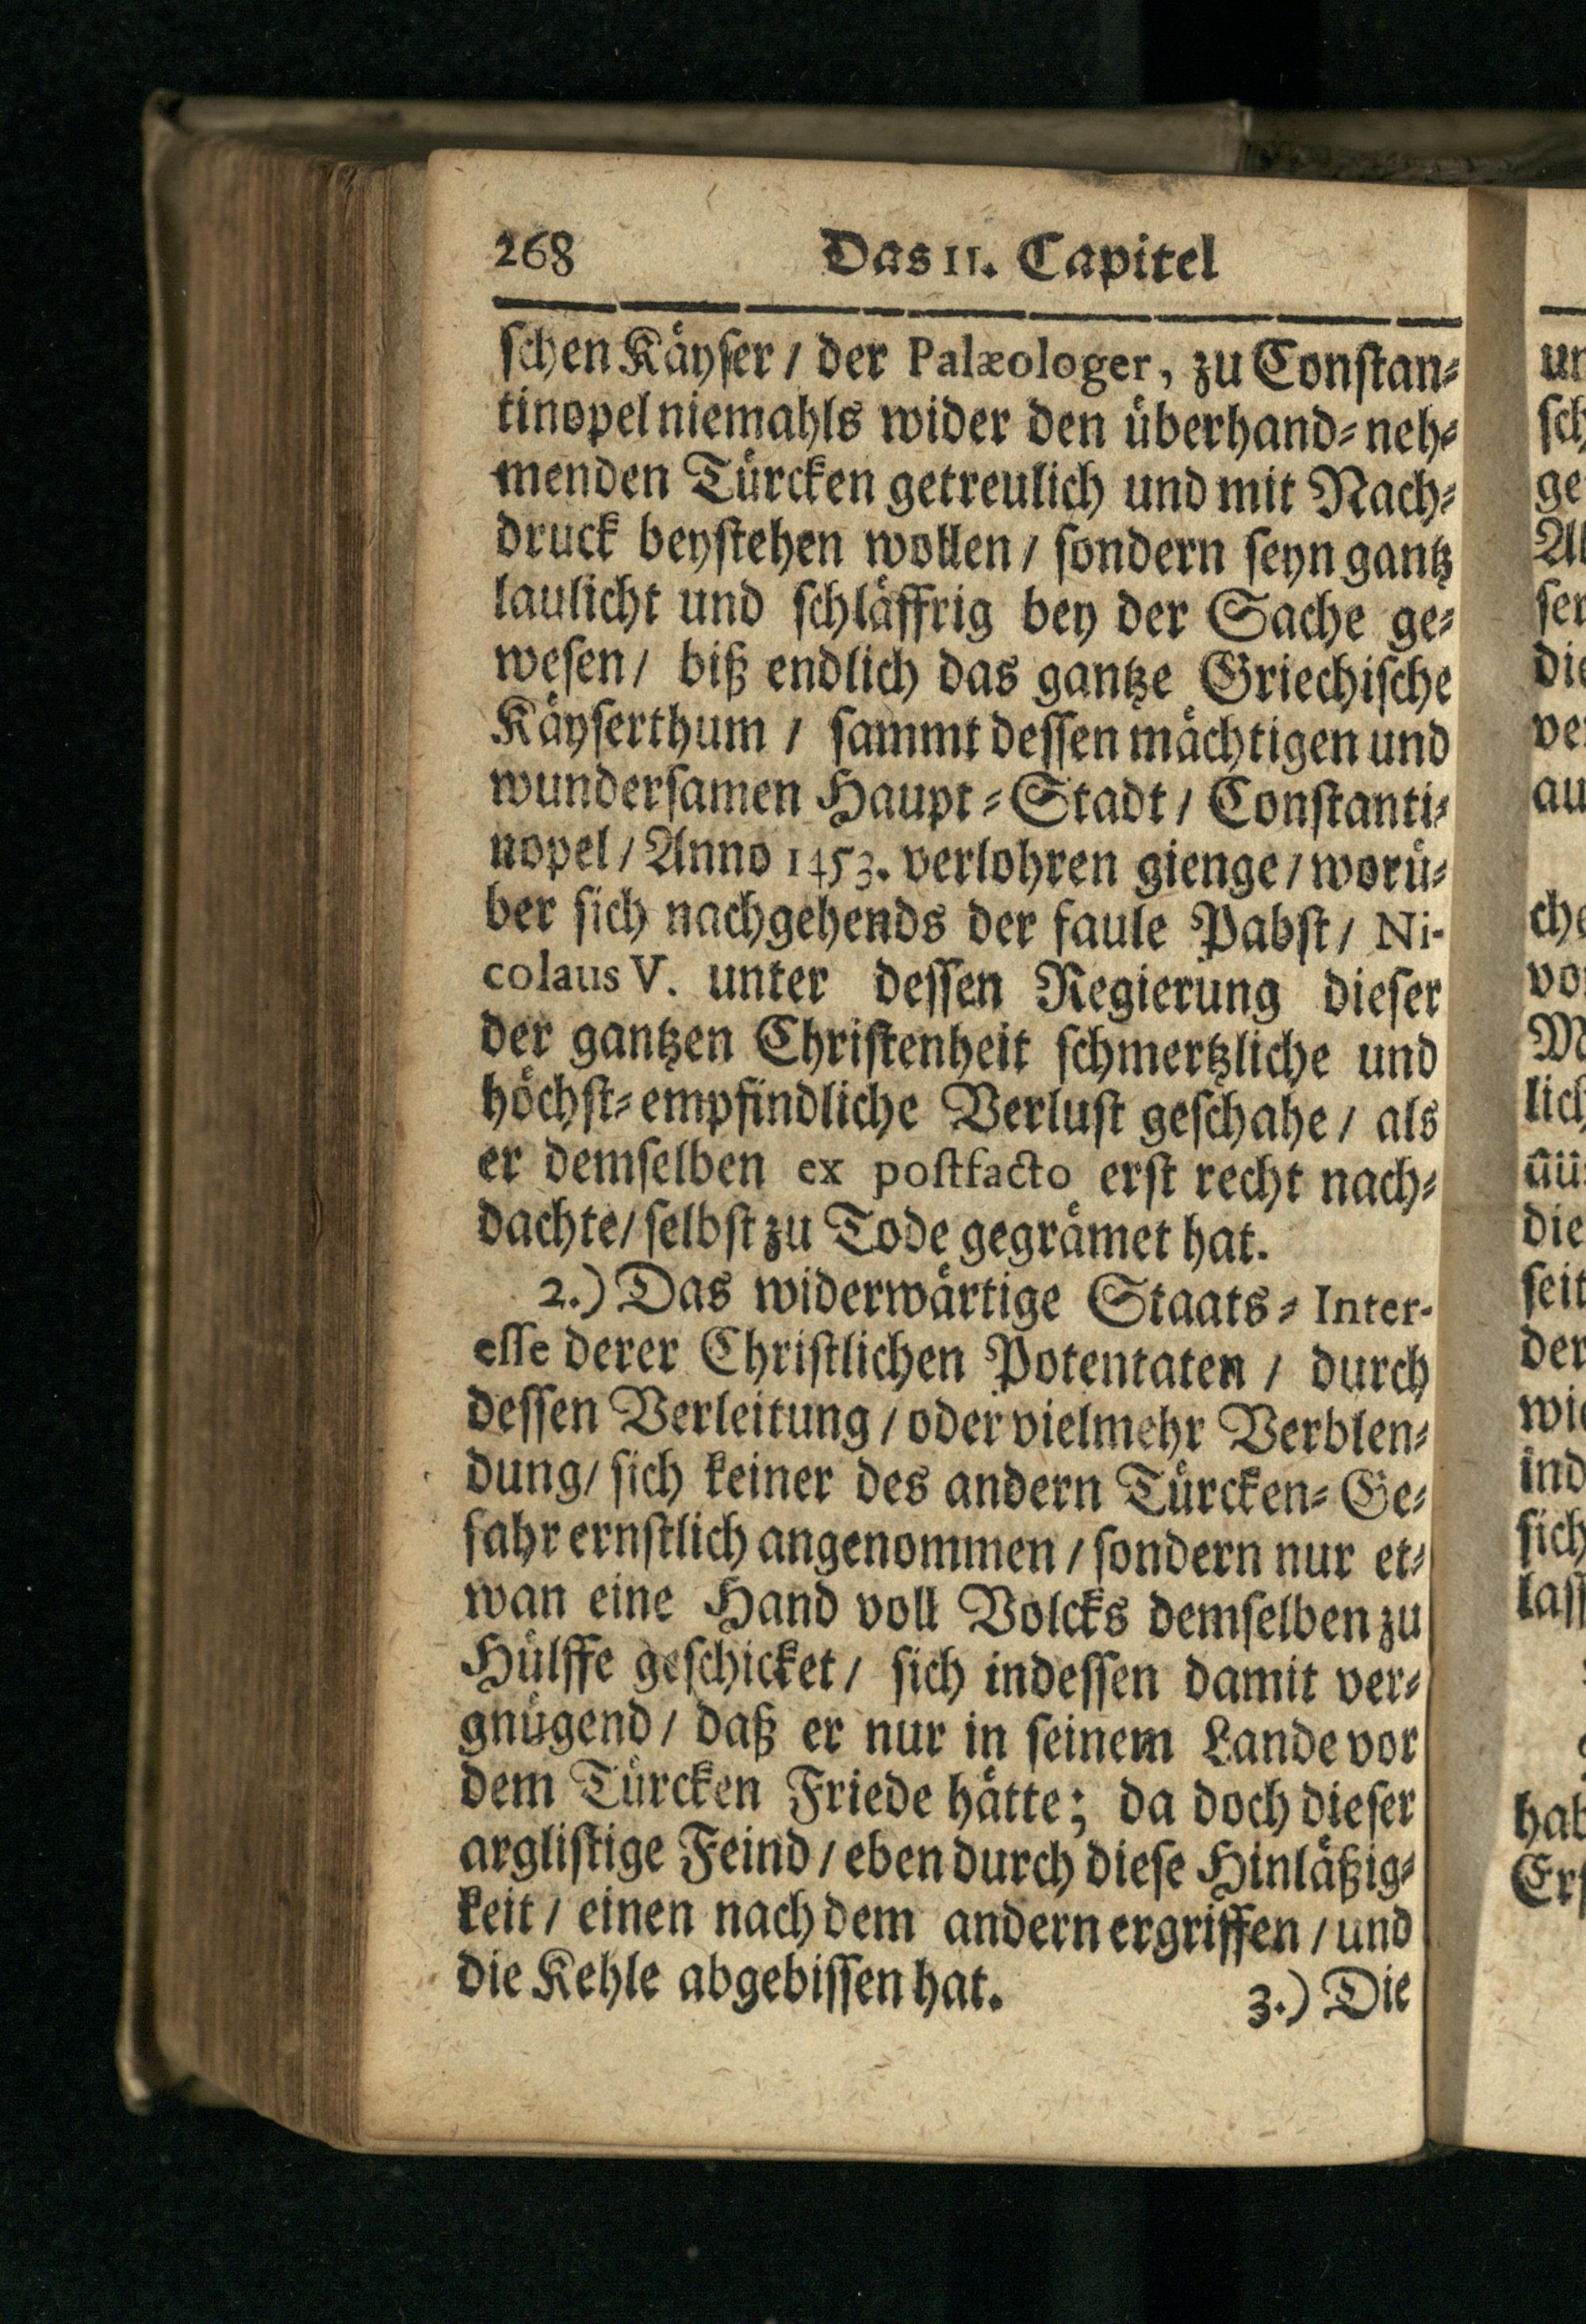 268 Das II. Capitel
schen Käyser / der Palæologer, zu Constan-
tinopel niemahls wider den überhand-neh-
menden Türcken getreulich und mit Nach-
druck beystehen wollen / sondern seyn gantz
laulicht und schläffrig bey der Sache ge-
wesen / biß endlich das gantze Griechische
Käyserthum / sammt dessen mächtigen und
wundersamen Haupt-Stadt / Constanti-
nopel / Anno 1453. verlohren gienge / worü-
ber sich nachgehends der faule Pabst / Ni-
colaus V. unter dessen Regierung dieser
der gantzen Christenheit schmertzliche und
höchst-empfindliche Verlust geschahe / als
er demselben ex postfacto erst recht nach-
dachte / selbst zu Tode gegrämet hat.
2.) Das widerwärtige Staats-Inter-
esse derer Christlichen Potentaten / durch
dessen Verleitung / oder vielmehr Verblen-
dung / sich keiner des andern Türcken-Ge-
fahr ernstlich angenommen / sondern nur et-
wan eine Hand voll Volcks demselben zu
Hülffe geschicket / sich indessen damit ver-
gnügend / daß er nur in seinem Lande vor
dem Türcken Friede hätte; da doch dieser
arglistige Feind / eben durch diese Hinläßig-
keit / einen nach dem andern ergriffen / und
die Kehle abgebissen hat.
3.) Die